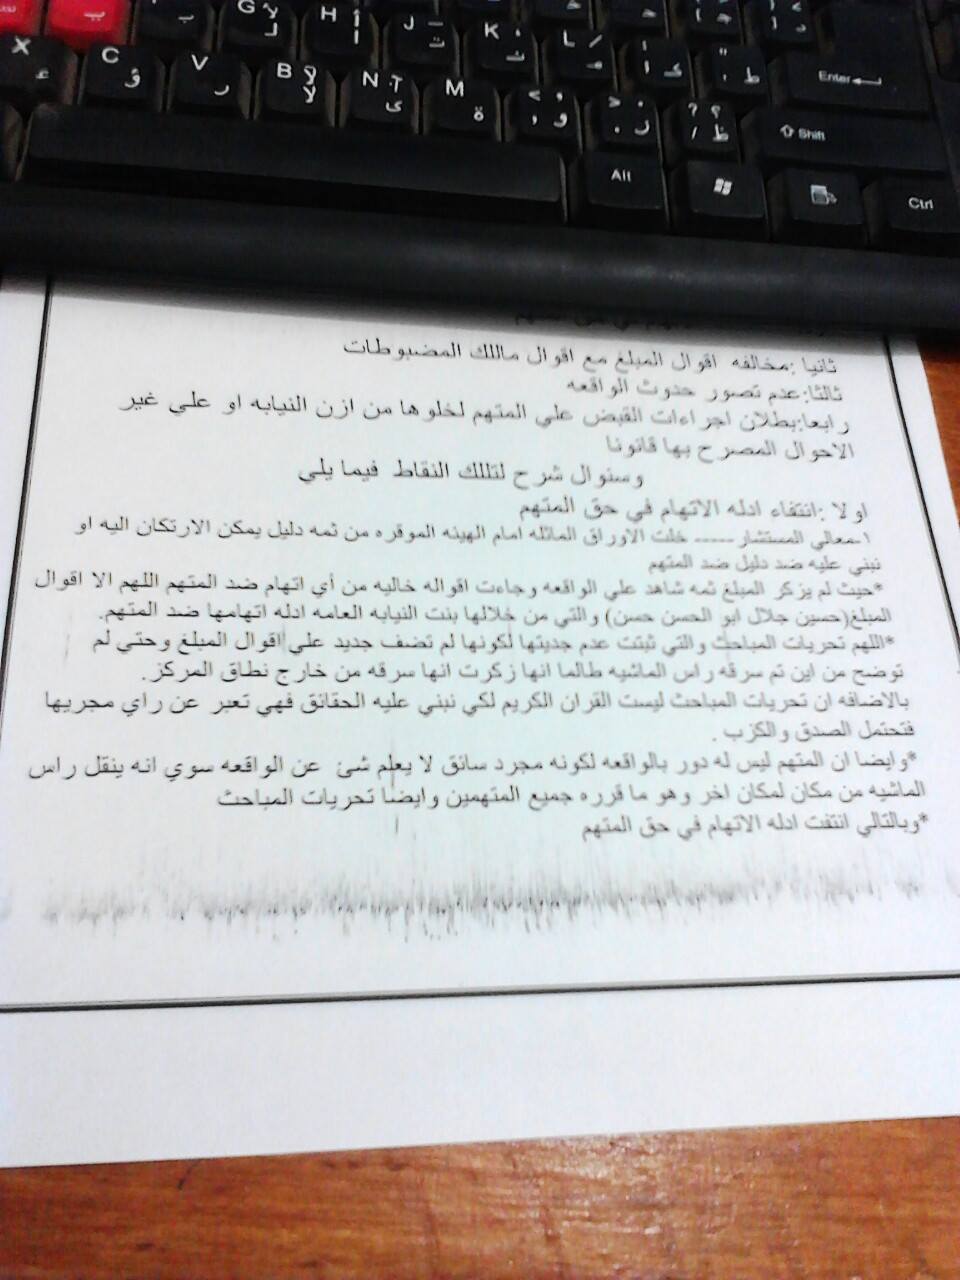 G لا
H أ
J ت
K ن
L م
Enter
X ء
C ؤ
V ر
B لا
N آ ى
M ة
< , و
> . ز
? / ظ ؟
Shift
Alt
Ctrl
ثانيا :مخالفه اقوال المبلغ مع اقوال مالك المضبوطات
ثالثا:عدم تصور حدوث الواقعه
رابعا:بطلان اجراءات القبض علي المتهم لخلوها من ازن النيابه او علي غير
الاحوال المصرح بها قانونا
وسنوال شرح لتلك النقاط فيما يلي
اولا :انتفاء ادله الاتهام في حق المتهم
١-معالي المستشار----- خلت الاوراق الماثله امام الهيئه الموقره من ثمه دليل يمكن الارتكان اليه او
نبني عليه ضد دليل ضد المتهم
*حيث لم يزكر المبلغ ثمه شاهد علي الواقعه وجاءت اقواله خاليه من أي اتهام ضد المتهم اللهم الا اقوال
المبلغ(حسين جلال ابو الحسن حسن) والتي من خلالها بنت النيابه العامه ادله اتهامها ضد المتهم.
*اللهم تحريات المباحث والتي ثبتت عدم جديتها لكونها لم تضف جديد علي اقوال المبلغ وحتي لم
توضح من اين تم سرقه راس الماشيه طالما انها زكرت انها سرقه من خارج نطاق المركز.
بالاضافه ان تحريات المباحث ليست القران الكريم لكي نبني عليه الحقائق فهي تعبر عن راي مجريها
فتحتمل الصدق والكزب .
*وايضا ان المتهم ليس له دور بالواقعه لكونه مجرد سائق لا يعلم شئ عن الواقعه سوي انه ينقل راس
الماشيه من مكان لمكان اخر وهو ما قرره جميع المتهمين وايضا تحريات المباحث
*وبالتالي انتفت ادله الاتهام في حق المتهم